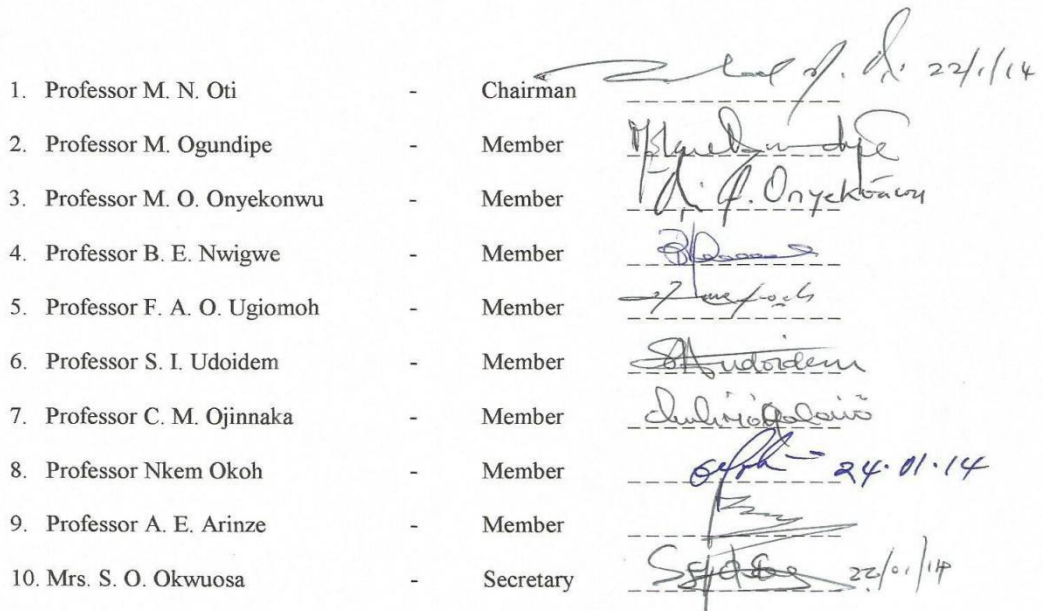 1. Professor M. N. Oti - Chairman 22/1/14
2. Professor M. Ogundipe - Member
3. Professor M. O. Onyekonwu - Member Onyekonwu
4. Professor B. E. Nwigwe - Member
5. Professor F. A. O. Ugiomoh - Member
6. Professor S. I. Udoidem - Member Udoidem
7. Professor C. M. Ojinnaka - Member
8. Professor Nkem Okoh - Member 24.01.14
9. Professor A. E. Arinze - Member
10. Mrs. S. O. Okwuosa - Secretary 22/01/14